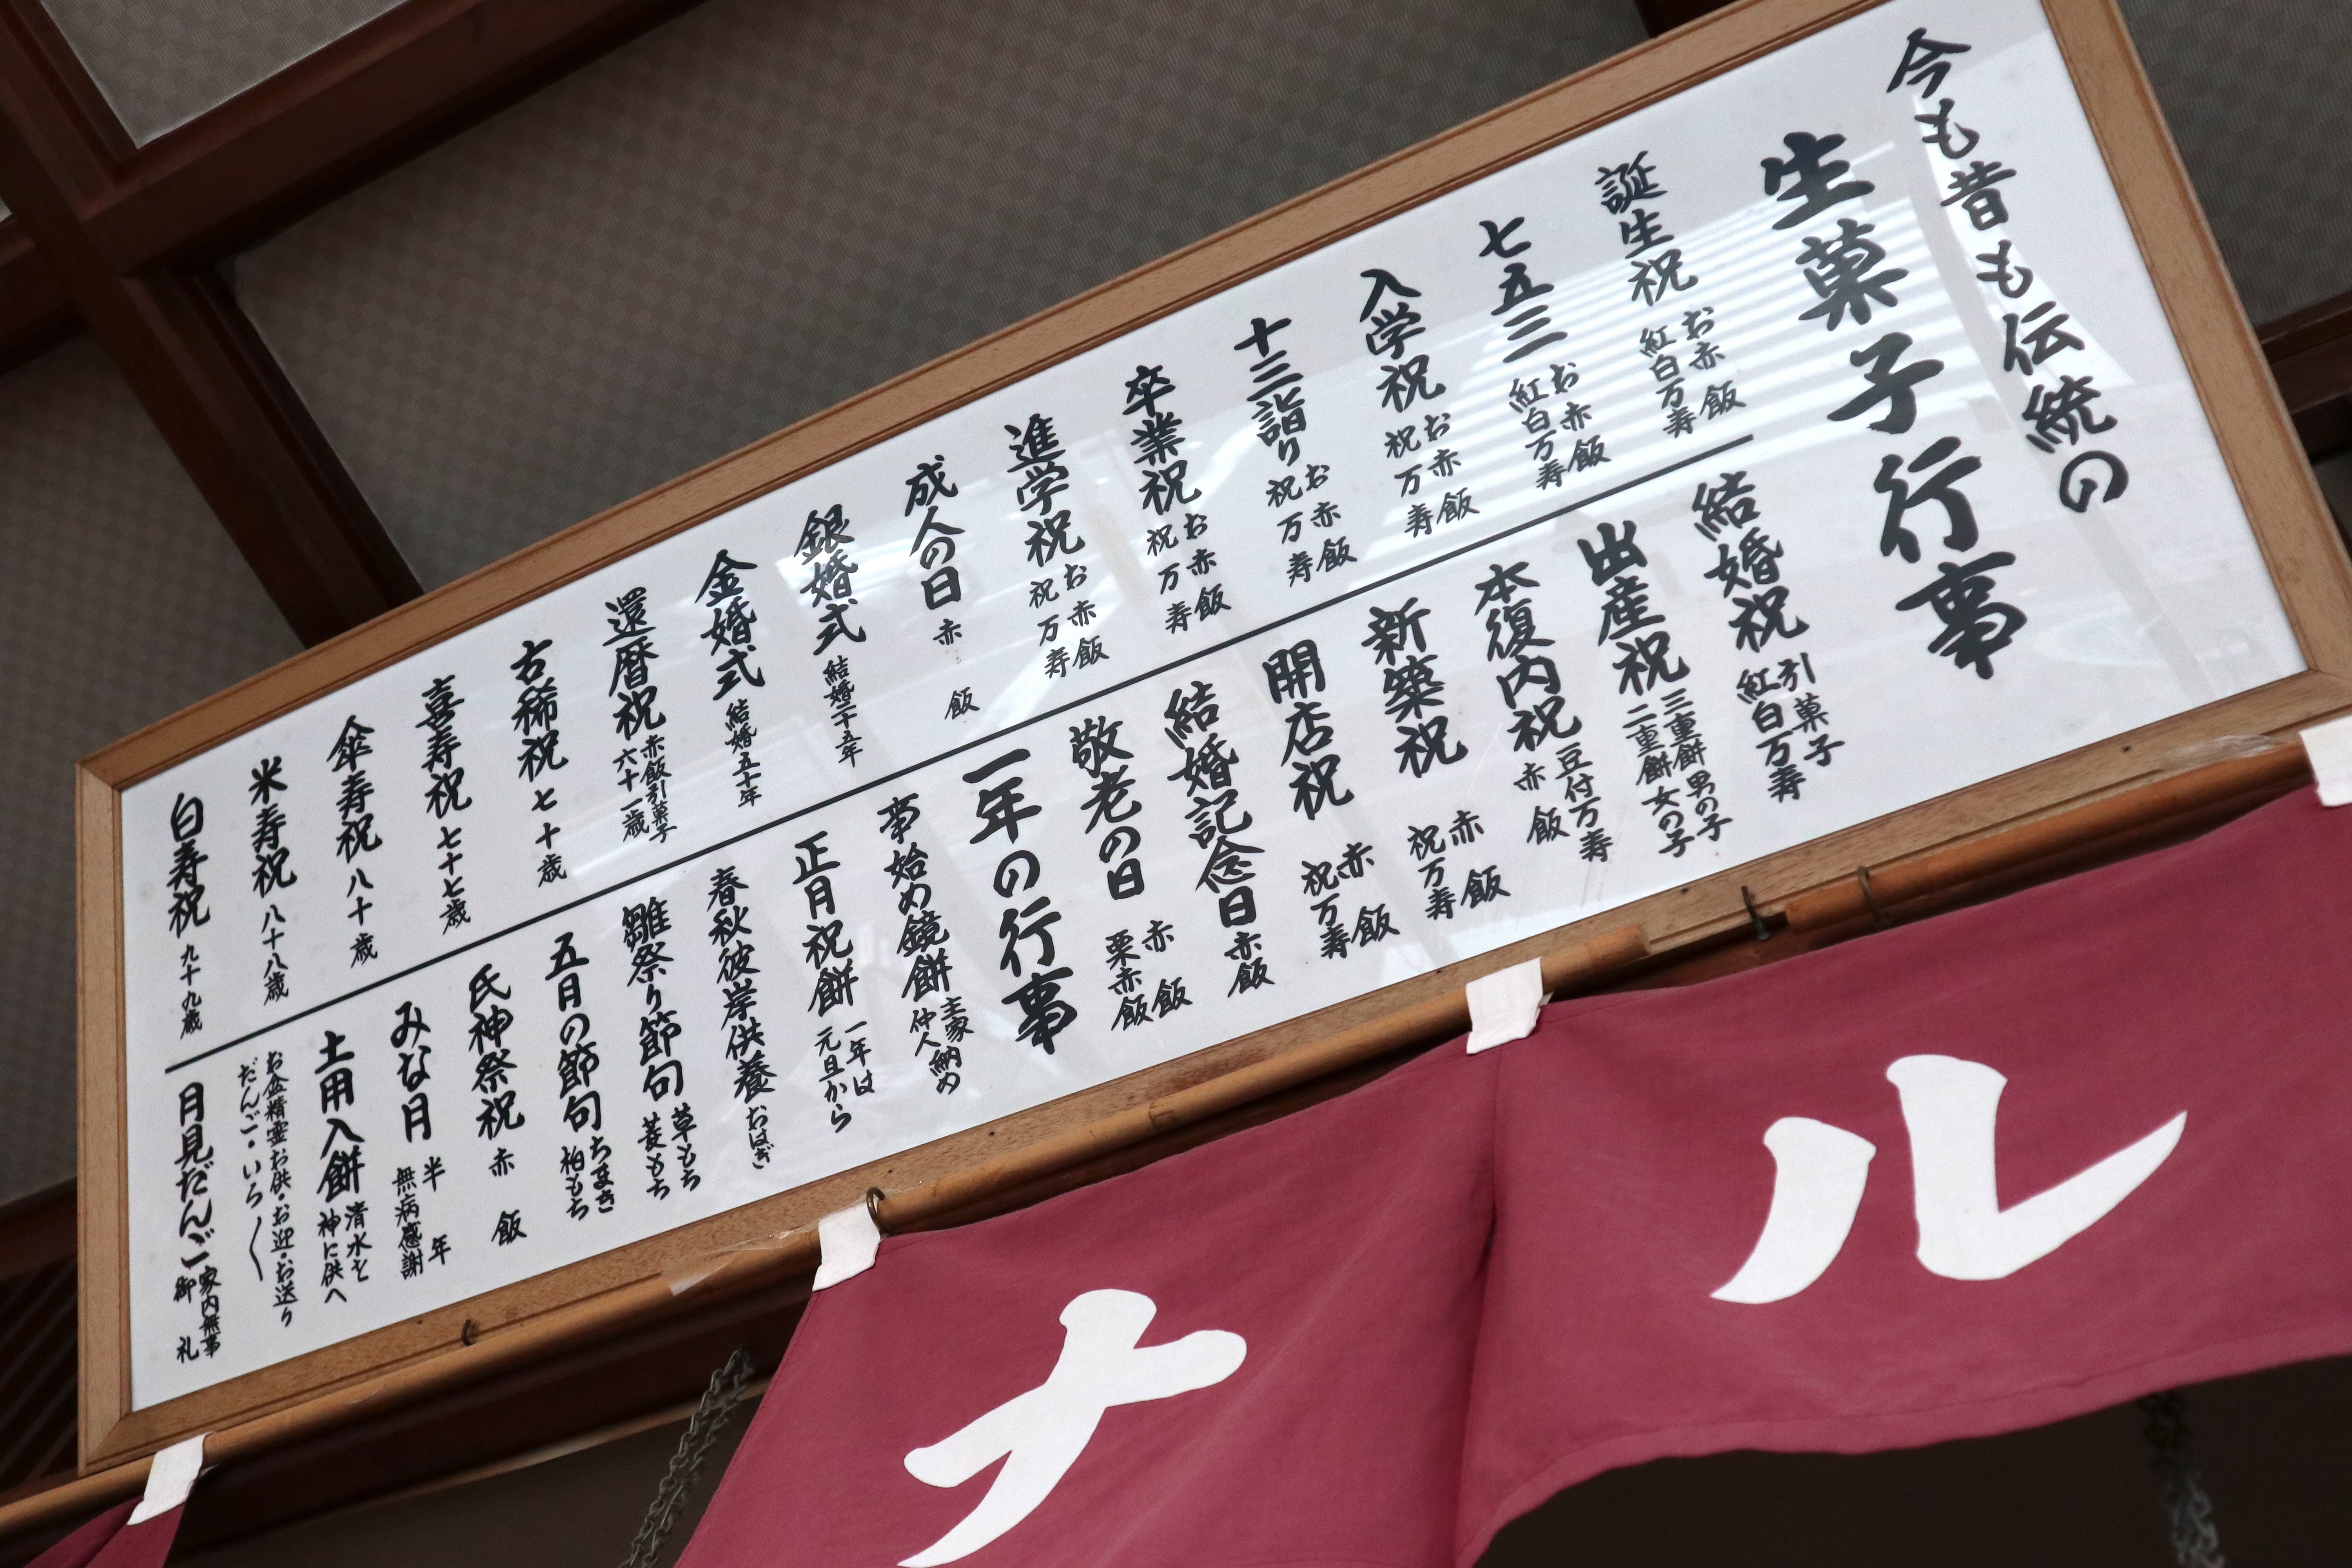 今も昔も伝統の
生菓子行事
誕生祝 お赤飯 紅白万寿
七五三 お赤飯 紅白万寿
入学祝 お赤飯 祝万寿
十三詣り お赤飯 祝万寿
卒業祝 お赤飯 祝万寿
進学祝 お赤飯 祝万寿
成人の日 赤飯
銀婚式 結婚二十五年
金婚式 結婚五十年
還暦祝 赤飯引菓子 六十一歳
古稀祝 七十歳
喜寿祝 七十七歳
傘寿祝 八十歳
米寿祝 八十八歳
白寿祝 九十九歳
結婚祝 引菓子 紅白万寿
出産祝 三重餅男の子 二重餅女の子
本復内祝 豆付万寿 赤飯
新築祝 赤飯 祝万寿
開店祝 赤飯 祝万寿
結婚記念日 赤飯
敬老の日 赤飯 栗赤飯
一年の行事
事始め鏡餅 主家納め 仲人
正月祝餅 一年は 元旦から
春秋彼岸供養 おはぎ
雛祭り節句 草もち 菱もち
五日の節句 ちまき 柏もち
氏神祭祝 赤飯
みな月 半年 無病感謝
土用入餅 清水を 神に供へ
お盆精霊お供・お迎・お送り
だんご・いろ〱
月見だんご 家内無事 御礼
ル
ナ